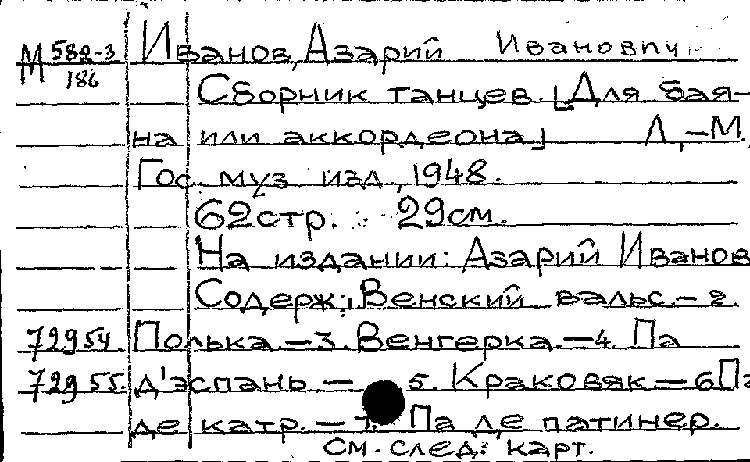 М 582-3 Иванов, Азарий Иванович
186
Сборник танцев. [Для бая-
на или аккордеона] Л.-М.,
Гос. муз. изд., 1948.
62 стр. 29 см.
На издании: Азарий Иванов
Содерж.: Венский вальс. - 2.
72954 Полька. - 3. Венгерка. - 4. Па
72955 д'эспань - 5. Краковяк - 6. Па
де катр. - 7. Па де патинер.
См. след. карт.